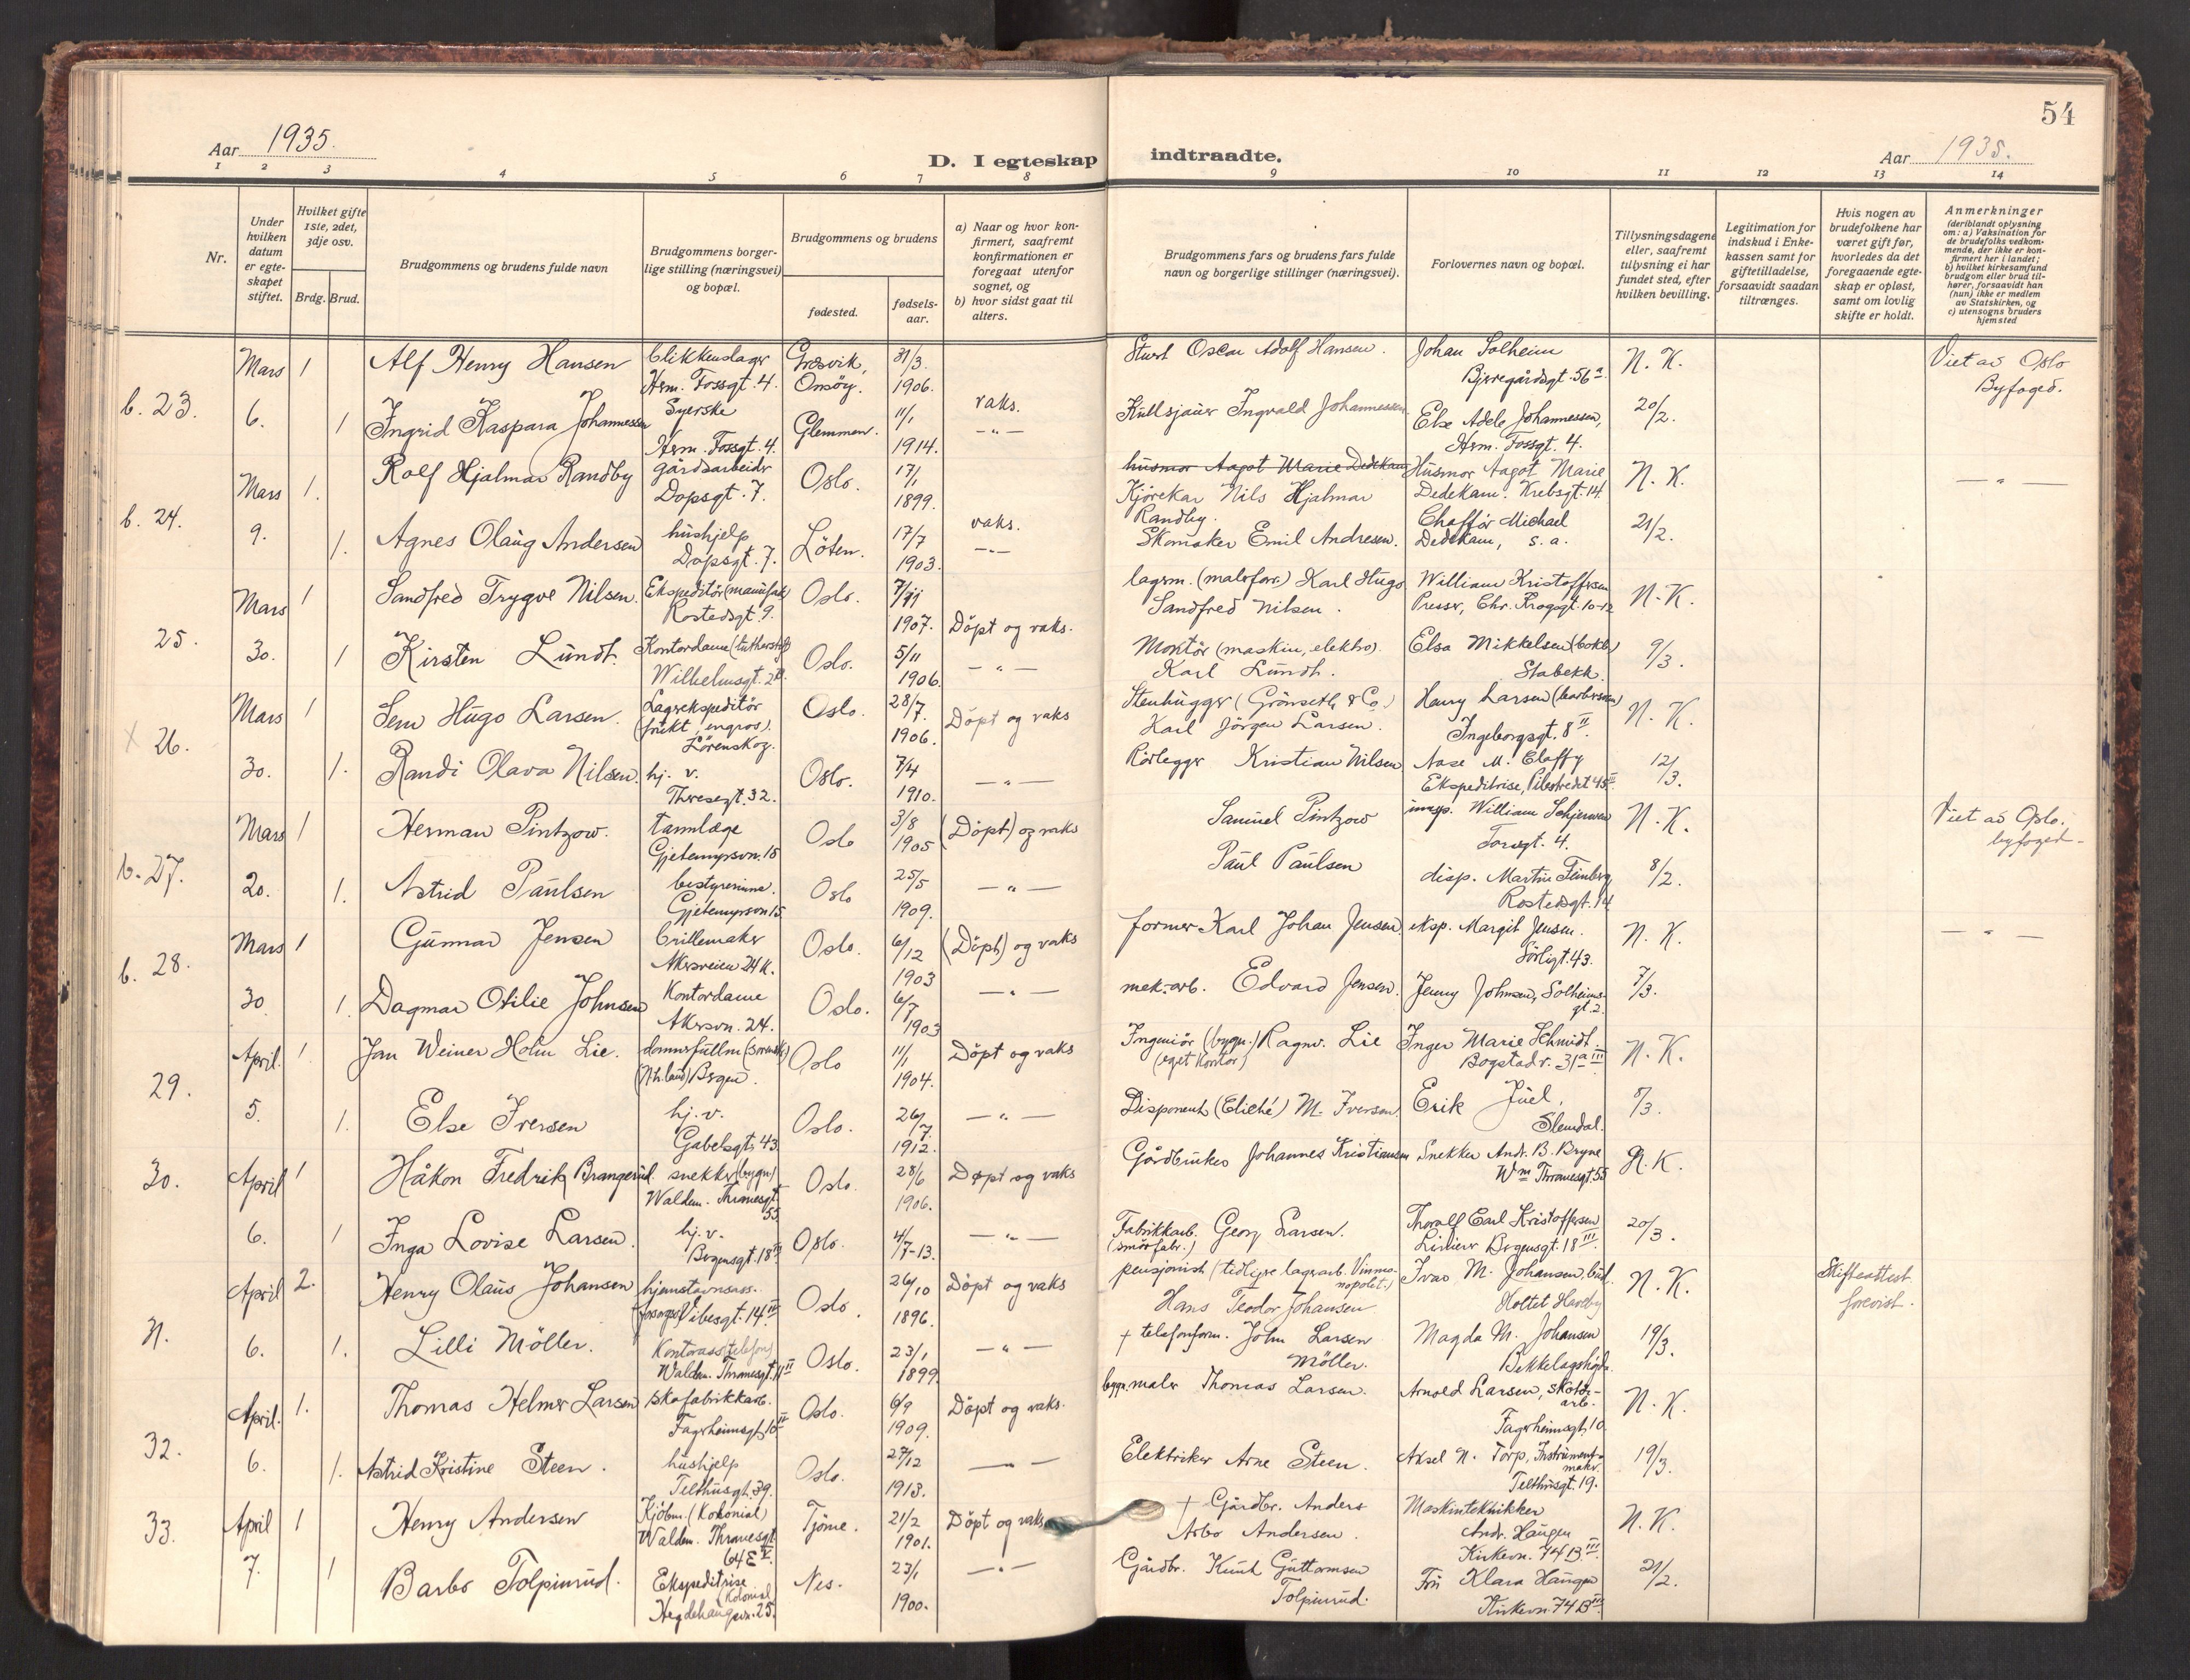 54
Aar 1935.
D. I egteskap indtraadte.
Aar 1935.
1 2 3 4 5 6 7 8 9 10 11 12 13 14
Nr.
Under hvilken datum er egte-skapet stiftet.
Hvilket gifte 1ste, 2det, 3dje osv.
Brdg. Brud.
Brudgommens og brudens fulde navn
Brudgommens borger-lige stilling (næringsvei) og bopæl.
Brudgommens og brudens
fødested.
fødsels-aar.
a) Naar og hvor kon-firmert, saafremt konfirmationen er foregaat utenfor sognet, og
b) hvor sidst gaat til alters.
Brudgommens fars og brudens fars fulde navn og borgerlige stillinger (næringsvei).
Forlovernes navn og bopæl.
Tillysningsdagene eller, saafremt tillysning ei har fundet sted, efter hvilken bevilling.
Legitimation for indskud i Enke-kassen samt for giftetilladelse, forsaavidt saadan tiltrænges.
Hvis nogen av brudefolkene har været gift før, hvorledes da det foregaaende egte-skap er opløst, samt om lovlig skifte er holdt.
Anmerkninger
(deriblandt oplysning om: a) Vaksination for de brudefolks vedkom-mende, der ikke er kon-firmert her i landet; b) hvilket kirkesamfund brudgom eller brud til-hører, forsaavidt han (hun) ikke er medlem av Statskirken, og c) utensogns bruders hjemsted
b. 23. Mars 6. 1 Alf Henry Hansen blikkenslager Herm. Fossgt. 4. Gresvik, Onsöy. 31/3. 1906. vaks. Oscar Adolf Hansen. Johan Solheim Bjerregårdsgt. 56a N. K. Viet av Oslo Byfoged.
1 Ingrid Kaspara Johannessen Syerske Herm. Fossgt. 4. Glemmen. 11/1 1914. -"- Kullsjauer Ingvald Johannessen Else Adele Johannessen, Herm. Fossgt. 4. 20/2.
b. 24. Mars 9. 1. Rolf Hjalmar Randby gårdsarbeider Dopsgt. 7. Oslo. 17/1 1899. vaks. husmor Aagot Marie Dedekam Kjörekar Nils Hjalmar Randby. Husmor Aagot Marie Dedekam. Krebsgt. 14 N. K. -"-
1. Agnes Olaug Andersen hushjelp Dopsgt. 7. Löten. 17/7 1903. -"- Skomaker Emil Andresen. Chafför Michael Dedekam, s. a. 21/2.
25. Mars 30. 1 Sandfred Trygve Nilsen. Ekspeditör (manufak) Rostedsgt. 9. Oslo. 1907. Döpt og vaks. lagerm. (malerforr.) Karl Hugo Sandfred Nilsen. William Kristoffersen Presser, Chr. Krogsgt. 10-12 N. K.
1 Kirsten Lundt. Kontordame Wilhelmsgt. Oslo. 5/11 1906. -"- Montör (maskin, elektro). Karl Lundt. Elsa Mikkelsen Stabekk. 9/3.
26. Mars 30. 1 Sem Hugo Larsen. Lagerekspeditör (frukt, engros). Lörenskog. Oslo. 28/7. 1906. Döpt og vaks Stenhugger (Grönseth & Co.) Karl Jörgen Larsen. Henry Larsen Ingeborgsgt. 8 II. N. K.
1. Randi Olava Nilsen. hj. v. Theresegt. 32. Oslo. 7/4 1910. -"- Rörlegger Kristian Nilsen Aase M. Ekspeditrise, Pilestredet 45 12/3.
b. 27. Mars 20. 1 Herman Pintzow. tannlæge Gjetemyrsvn. 15 Oslo 3/8 1905 (Döpt) og vaks Samuel Pintzow William Schjerven Torsgt. 4. N. K. Viet av Oslo. byfoged-
1. Astrid Paulsen bestyrerinne. Gjetemyrsvn 15. Oslo 25/5 1909. -"- Paul Paulsen disp. Martin Feinberg Rostedsgt. 14 8/2.
b. 28. Mars 30 1 Gunnar Jensen brillemaker Akersveien 24 K. Oslo. 6/12 1903 (Döpt) og vaks former Karl Johan Jensen eksp. Margit Jensen. Sörligt. 43. N. K. -"-
1. Dagmar Otilie Johnsen Kontordame Akersvn. 24. Oslo. 6/7 1903 -"- mek. arb. Edvard Jensen. Jenny Johnsen, Solheims-gt. 2. 7/3.
29. April. 5. 1. Jan Weiner Holm Lie. dommerfullm (Nh. land) Bergen. Oslo 11/1 1904. Döpt og vaks Ingeniör (bygn.) Ragnv. Lie (eget kontor) Inger Marie Schmidt. Bogstadv. 31a III N. K.
1. Else Iversen hj. v. Gabelsgt. 43. Oslo. 26/7. 1912. -"- Disponent (Cliché) M. Iversen Erik Juel, Slemdal. 8/3.
30. April 6. 1 Håkon Fredrik Brangerud. snekker (bygn) Waldem. Thranesgt. 55 Oslo. 28/6 1906. Döpt og vaks Gårdbruker Johannes Kristiansen Snekker Andr. B. Bryne Wm Thranesgt. 55 N. K.
1 Inga Lovise Larsen. hj. v. Bergensgt. 18 III. Oslo. 4/7-13. -"- Fabrikkarb. (smörfabr.) Georg Larsen. Thoralf Carl Kristoffersen Bergensgt. 18 III. 20/3.
31. April 6. 2. Henry Olaus Johansen Vibesgt. 14 III Oslo. 26/10 1896. Döpt og vaks pensjonist (tidligere lagerarb. Vinmo-nopolet.) Hans Teodor Johansen Ivar M. Johansen, bud Holtet Haveby N. K. Skifteattest forevist.
1. Lilli Möller. Kontorass (telefon) Waldem. Thranesgt. 11 II Oslo. 23/1 1899. -"- + telefonform. John Larsen Möller. Magda M. Johansen Bekkelagshögda. 19/3.
32. April. 6. 1. Thomas Helmer Larsen skofabrikkarb. Fagerheimsgt. 10 II Oslo. 6/9 1909. Döpt og vaks. bygn. maler Thomas Larsen. Arnold Larsen, skotöi-arb. Fagerheimsgt. 10 N. K.
1. Astrid Kristine Steen. hushjelp Telthusgt. 39. Oslo. 27/12 1913. -"- Elektriker Arne Steen. Aksel N. Torp, Instrument-maker. Telthusgt. 19. 19/3.
33. April 7. 1 Henry Andersen Kjöbm. (Kolonial) Waldem. Thranesgt. 64 E V. Tjöme. 21/2 1901. Döpt og vaks + Gårdbr. Anders Arbo Andersen. Maskintekniker Andr. Haugen Kirkevn. 74 B III. N. K.
1 Barbo Tolpinrud. Ekspeditrise (Kolonial) Hegdehaugsvn. 25. Nes. 23/1 1900. -"- Gårdbr. Knut Guttormsen Tolpinrud. Fru Klara Haugen Kirkevn. 74 B III. 21/2.